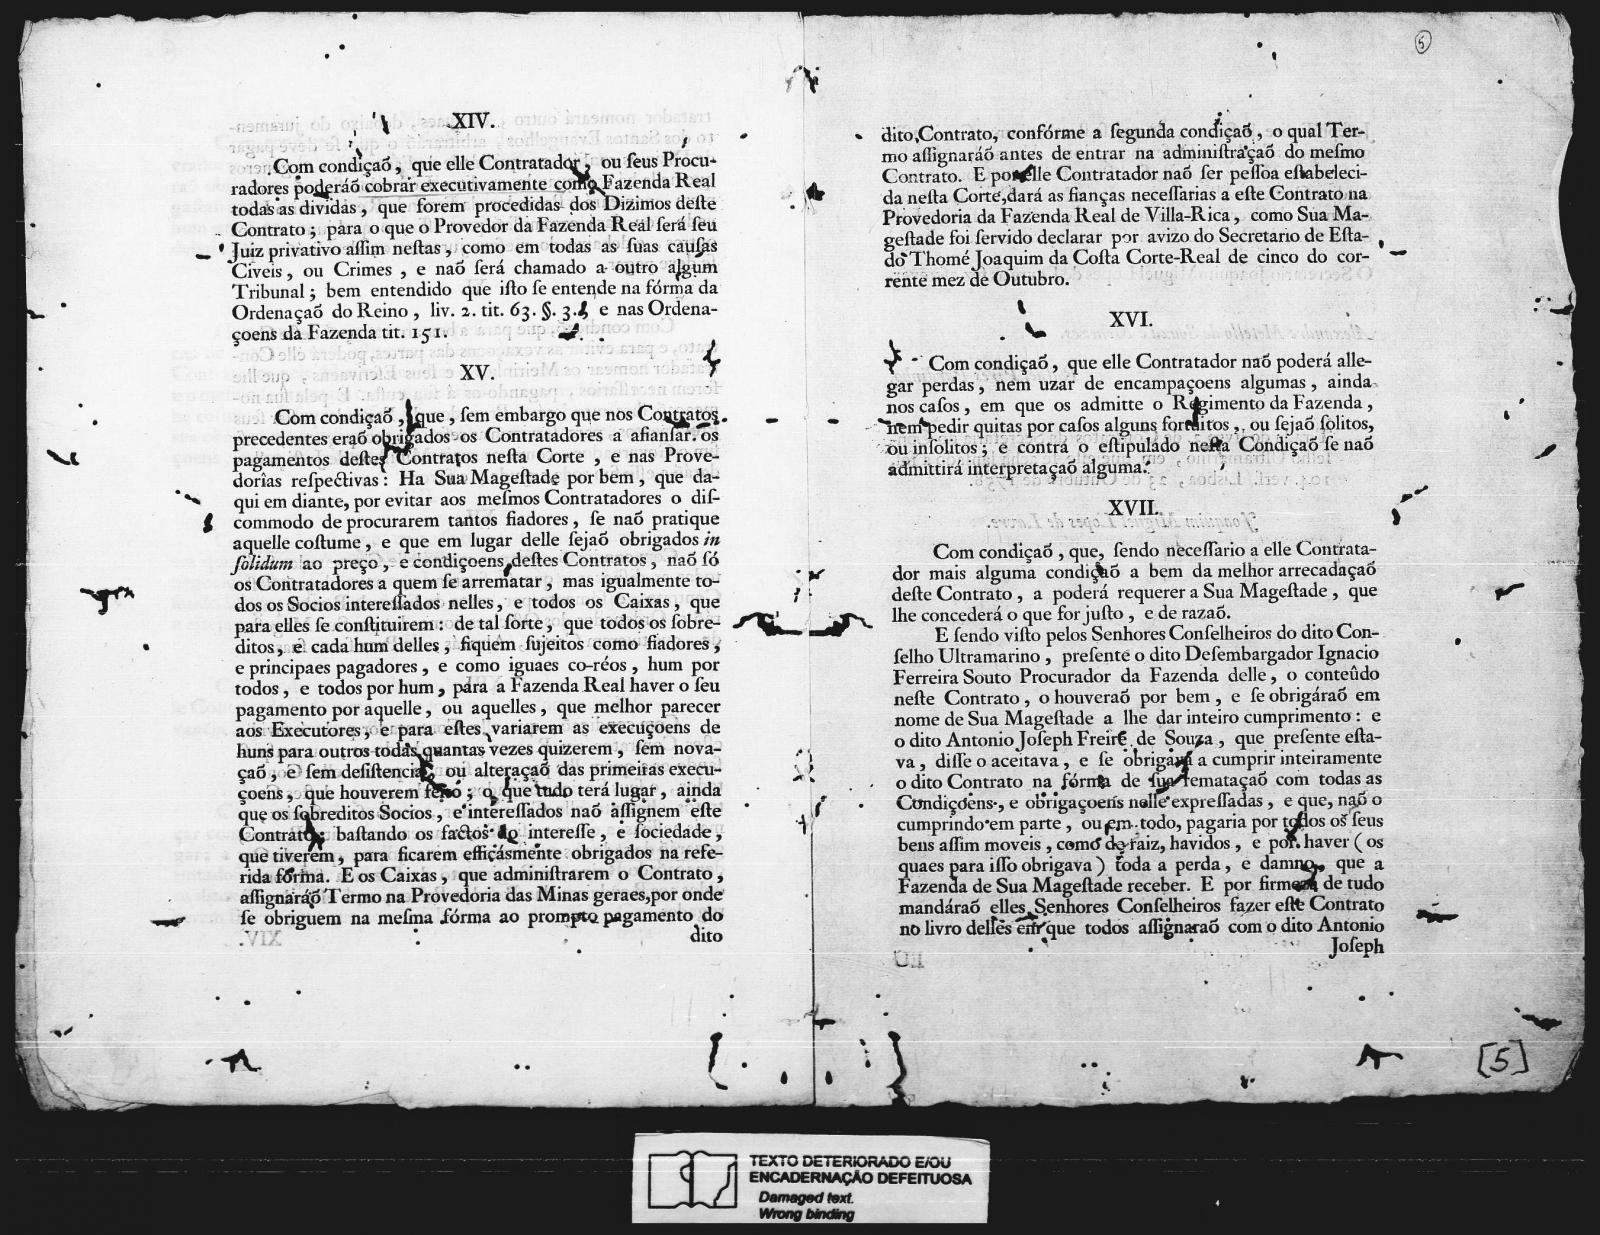 XIV.
Com condiçaõ, que elle Contratador, ou ſeus Procu-
radores poderáõ cobrar executivamente como Fazenda Real
todas as dividas, que forem procedidas dos Dizimos deſte
Contrato; para o que o Provedor da Fazenda Real ſerá ſeu
Juiz privativo aſſim neſtas, como em todas as ſuas cauſas
Civeis, ou Crimes, e naõ ſerá chamado a outro algum
Tribunal; bem entendido que iſto ſe entende na fórma da
Ordenaçaõ do Reino, liv. 2. tit. 63. §. 3. e nas Ordena-
çoens da Fazenda tit. 151.
XV.
Com condiçaõ, que, ſem embargo que nos Contratos
precedentes eraõ obrigados os Contratadores a afianſar os
pagamentos deſtes Contratos neſta Corte, e nas Prove-
dorias reſpectivas: Ha Sua Mageſtade por bem, que da-
qui em diante, por evitar aos meſmos Contratadores o diſ-
commodo de procurarem tantos fiadores, ſe naõ pratique
aquelle coſtume, e que em lugar delle ſejaõ obrigados in
ſolidum ao preço, e condiçoens deſtes Contratos, naõ ſó
os Contratadores a quem ſe arrematar, mas igualmente to-
dos os Socios intereſſados nelles, e todos os Caixas, que
para elles ſe conſtituirem: de tal ſorte, que todos os ſobre-
ditos, e cada hum delles, fiquem ſujeitos como fiadores,
e principaes pagadores, e como iguaes co-réos, hum por
todos, e todos por hum, para a Fazenda Real haver o ſeu
pagamento por aquelle, ou aquelles, que melhor parecer
aos Executores, e para eſtes variarem as execuçoens de
huns para outros todas quantas vezes quizerem, ſem nova-
çaõ, e ſem deſiſtencia, ou alteraçaõ das primeiras execu-
çoens, que houverem feito; o que tudo terá lugar, ainda
que os ſobreditos Socios, e intereſſados naõ aſſignem eſte
Contrato; baſtando os factos do intereſſe, e ſociedade,
que tiverem, para ficarem efficásmente obrigados na refe-
rida fórma. E os Caixas, que adminiſtrarem o Contrato,
aſſignaráõ Termo na Provedoria das Minas geraes, por onde
ſe obriguem na meſma fórma ao prompto pagamento do
dito
5
dito Contrato, confórme a ſegunda condiçaõ, o qual Ter-
mo aſſignaráõ antes de entrar na adminiſtraçaõ do meſmo
Contrato. E por elle Contratador naõ ſer peſſoa eſtabeleci-
da neſta Corte, dará as fianças neceſſarias a eſte Contrato na
Provedoria da Fazenda Real de Villa-Rica, como Sua Ma-
geſtade foi ſervido declarar por avizo do Secretario de Eſta-
do Thomé Joaquim da Coſta Corte-Real de cinco do cor-
rente mez de Outubro.
XVI.
Com condiçaõ, que elle Contratador naõ poderá alle-
gar perdas, nem uzar de encampaçoens algumas, ainda
nos caſos, em que os admitte o Regimento da Fazenda,
nem pedir quitas por caſos alguns fortuitos, ou ſejaõ ſolitos,
ou inſolitos; e contra o eſtipulado neſta Condiçaõ ſe naõ
admittirá interpretaçaõ alguma.
XVII.
Com condiçaõ, que, ſendo neceſſario a elle Contrata-
dor mais alguma condiçaõ a bem da melhor arrecadaçaõ
deſte Contrato, a poderá requerer a Sua Mageſtade, que
lhe concederá o que for juſto, e de razaõ.
E ſendo viſto pelos Senhores Conſelheiros do dito Con-
ſelho Ultramarino, preſente o dito Deſembargador Ignacio
Ferreira Souto Procurador da Fazenda delle, o conteûdo
neſte Contrato, o houveraõ por bem, e ſe obrigáraõ em
nome de Sua Mageſtade a lhe dar inteiro cumprimento: e
o dito Antonio Joſeph Freire de Souza, que preſente eſta-
va, diſſe o aceitava, e ſe obrigava a cumprir inteiramente
o dito Contrato na fórma de ſua remataçaõ com todas as
Condiçoens, e obrigaçoens nelle expreſſadas, e que, naõ o
cumprindo em parte, ou em todo, pagaria por todos os ſeus
bens aſſim moveis, como de raiz, havidos, e por haver (os
quaes para iſſo obrigava) toda a perda, e damno, que a
Fazenda de Sua Mageſtade receber. E por firmeza de tudo
mandáraõ elles Senhores Conſelheiros fazer eſte Contrato
no livro delles em que todos aſſignaraõ com o dito Antonio
Joſeph
[5]
TEXTO DETERIORADO E/OU
ENCADERNAÇÃO DEFEITUOSA
Damaged text.
Wrong binding